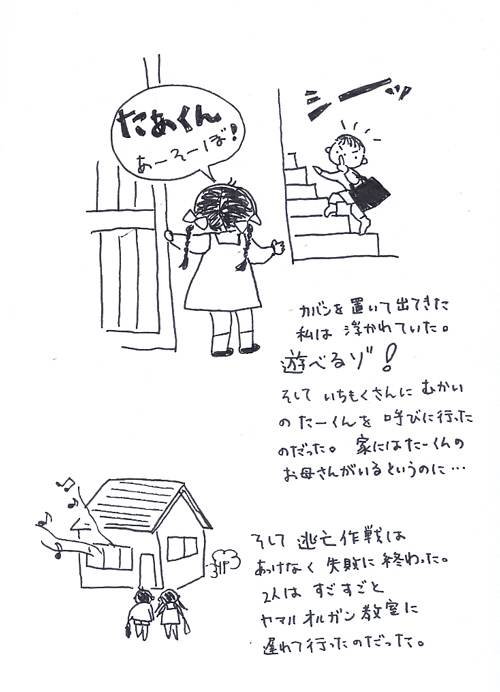 たあくん
あーそーぼ!
シーーッ
カバンを置いて出てきた
私は浮かれていた。
遊べるゾ!
そしていちもくさんにむかい
のたーくんを呼びに行った
のだった。家にはたーくんの
お母さんがいるというのに…
そして逃亡作戦は
あっけなく失敗に終わった。
2人はすごすごと
ヤマルオルガン教室に
遅れて行ったのだった。